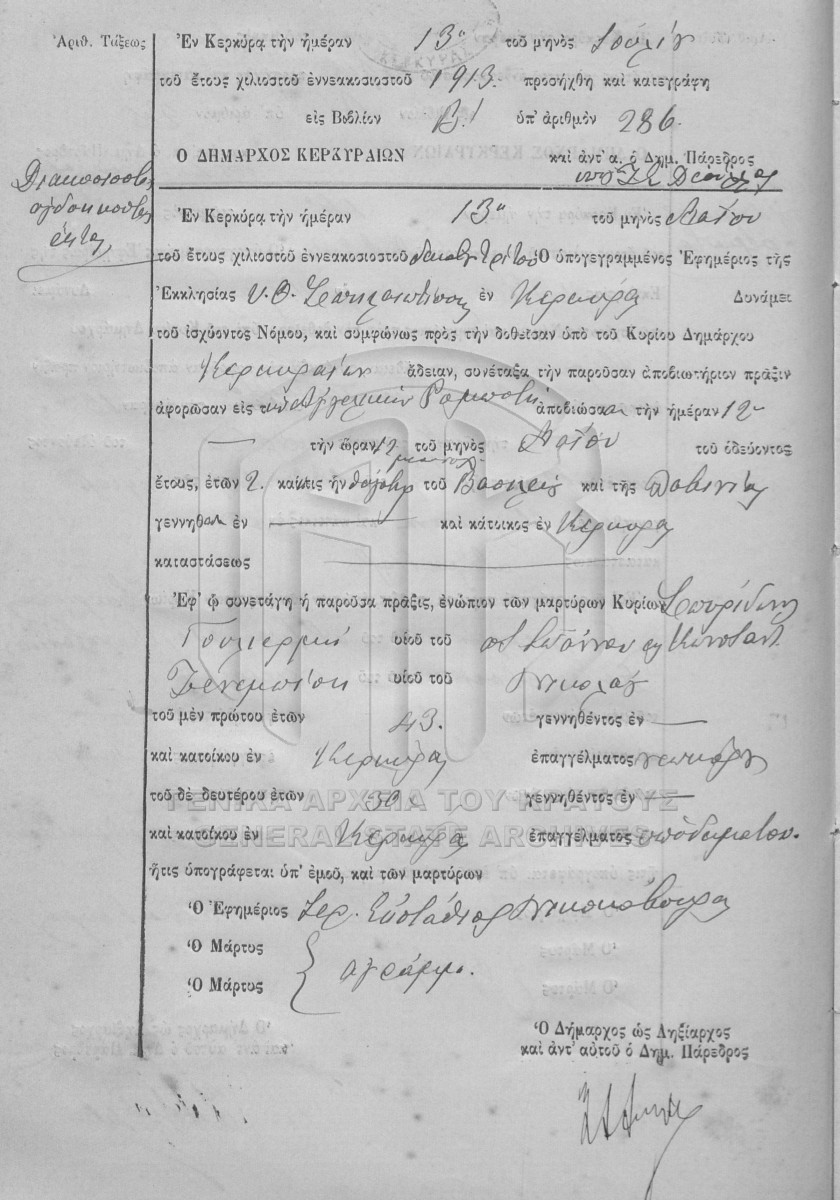 Ἀριθ. Τάξεως
Ἐν Κερκύρᾳ τὴν ἡμέραν 13η τοῦ μηνὸς Ἰουλίου
τοῦ ἔτους χιλιοστοῦ ἐννεακοσιοστοῦ 1913. προσήχθη καὶ κατεγράφη
εἰς Βιβλίον Β! ὑπ' ἀριθμὸν 286.
Ο ΔΗΜΑΡΧΟΣ ΚΕΡΚΥΡΑΙΩΝ καὶ ἀντ' α. ὁ Δημ. Πάρεδρος
Διακοσιοστὴ
ὀγδοηκοστὴ
ἕκτη
Ἐν Κερκύρᾳ τὴν ἡμέραν 13η τοῦ μηνὸς Μαΐου
τοῦ ἔτους χιλιοστοῦ ἐννεακοσιοστοῦ δεκάτου τρίτου Ὁ ὑπογεγραμμένος Ἐφημέριος τῆς
Ἐκκλησίας Υ. Θ. Σπηλαιωτίσσης ἐν Κερκύρᾳ Δυνάμει
τοῦ ἰσχύοντος Νόμου, καὶ συμφώνως πρὸς τὴν δοθεῖσαν ὑπὸ τοῦ Κυρίου Δημάρχου
Κερκυραίων ἄδειαν, συνέταξα τὴν παροῦσαν ἀποβιωτήριον πρᾶξιν
ἀφορῶσαν εἰς τὴν Ἀγγελικὴν ἀποβιώσασαν τὴν ἡμέραν 12
τὴν ὥραν 12 τοῦ μηνὸς Μαΐου τοῦ ὁδεύοντος
ἔτους, ἐτῶν 2. καὶ τις ἦν θυγάτηρ τοῦ Βασιλείου καὶ τῆς
γεννηθ ἐν καὶ κάτοικος ἐν Κερκύρᾳ
καταστάσεως
Ἐφ' ᾧ συνετάγη ἡ παροῦσα πρᾶξις, ἐνώπιον τῶν μαρτύρων Κυρίων Σπυρίδωνος
Γουλιερμῆ υἱοῦ τοῦ Ἰωάννου καὶ Κωνσταντ
υἱοῦ τοῦ Νικολάου
τοῦ μὲν πρώτου ἐτῶν 43. γεννηθέντος ἐν
καὶ κατοίκου ἐν Κερκύρᾳ ἐπαγγέλματος νεωκόρου
τοῦ δὲ δευτέρου ἐτῶν 30 γεννηθέντος ἐν
ΓΕΝΙΚΑ ΑΡΧΕΙΑ ΤΟΥ ΚΡΑΤΟΥΣ
καὶ κατοίκου ἐν Κερκύρᾳ ἐπαγγέλματος ὑποδηματοπ.
GENERAL STATE ARCHIVES
ἥτις ὑπογράφεται ὑπ' ἐμοῦ, καὶ τῶν μαρτύρων
Ὁ Ἐφημέριος Ἱερ. Εὐστάθιος
Ὁ Μάρτυς
ἀγράμμ.
Ὁ Μάρτυς
Ὁ Δήμαρχος ὡς Ληξίαρχος
καὶ ἀντ' αὐτοῦ ὁ Δημ. Πάρεδρος